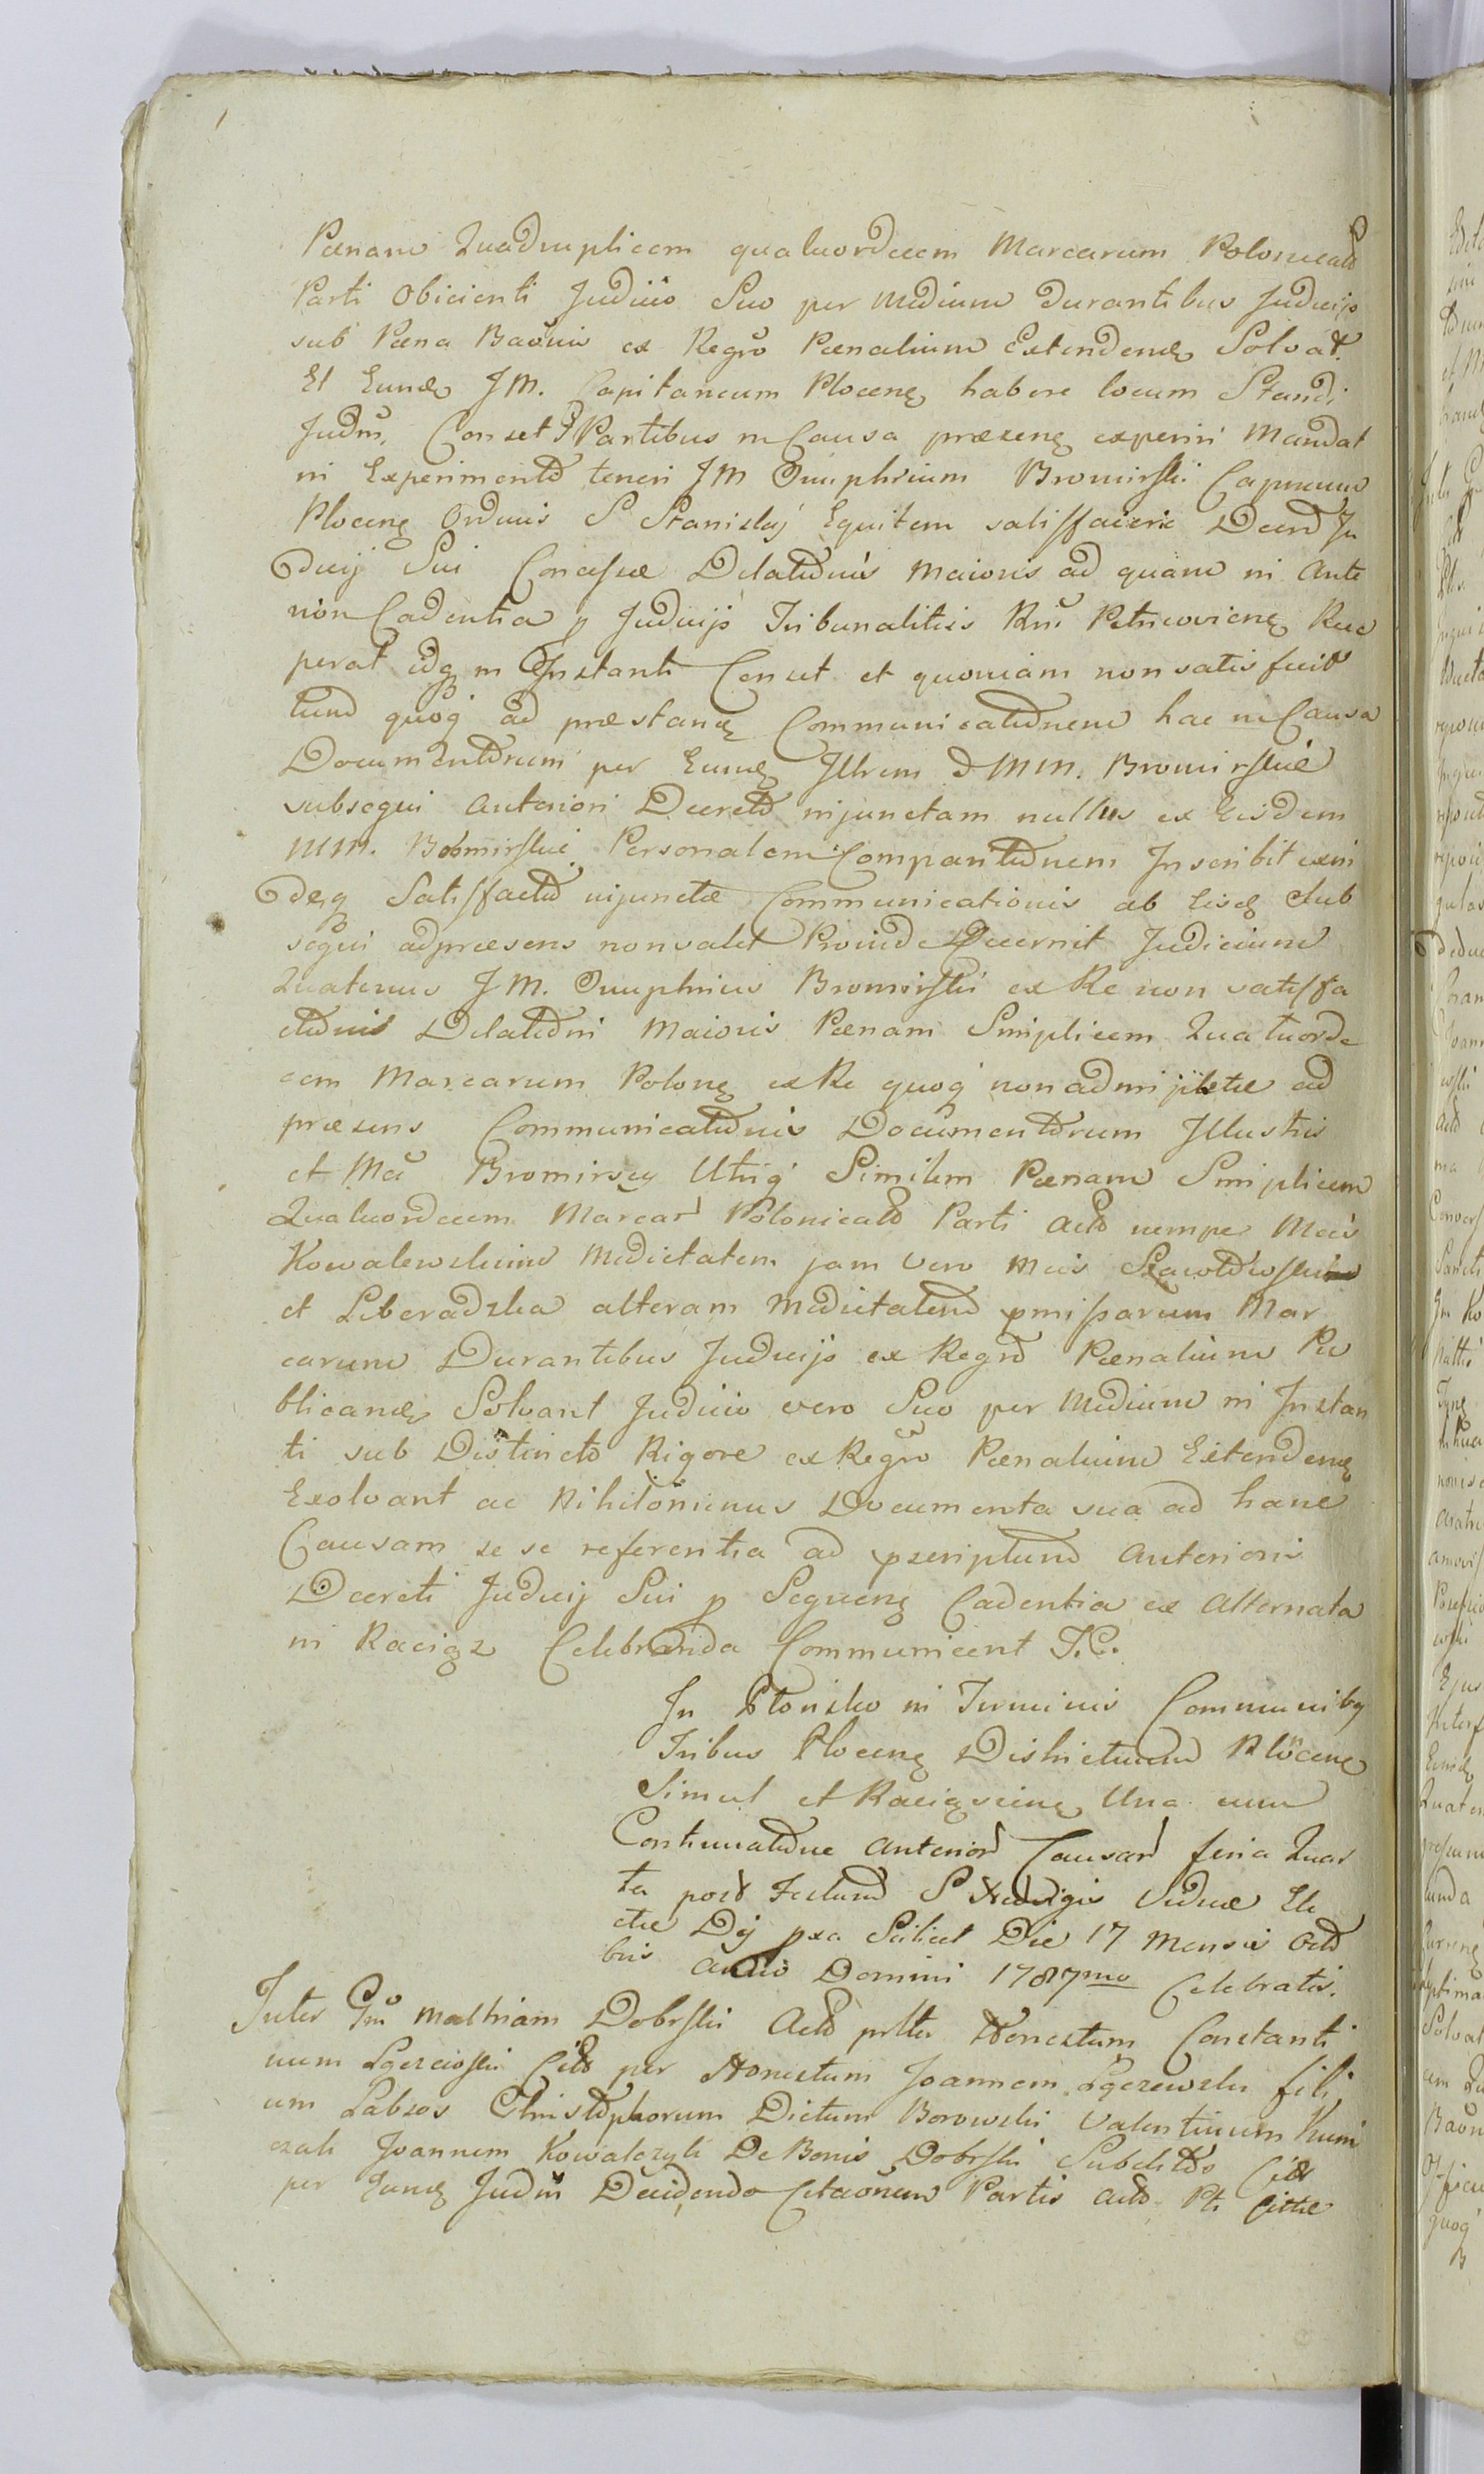 Pœnam Quadruplicem quatuordecem Marcarum Polonicals
Parti Obicienti Judicio Suo per Medium Durantibus Judicijs
sub Pœna Baōnis ex Regrō Pœnalium Extendenđ Solvat.
Et Eundę JM. Capitaneum Plocenę habere locum Standi
Judm̄. Conset Partibus in Causa præzenę experiri Mandat
in Experimento teneri JM Onuphrium Bromirski Capneum
Plocenę Ordinis S Stanislaj Equitem satisfacere Decrō Ju
dicij Sui Concessæ Dilationis Maioris ad quam in Ante
riori Cadentia p Judicijs Tribunalitiis Rni Petricovienę Rece
perat idq in Instanti Censet et quoniam non satisfecit
tum quoq ad præstandę Communicationem hac in Causa
Documentorum per Eundę Illrem D MM. Bromirskie
subsequi anteriori Decreto injunctam nullus ex Eisdem
MM. Bromirskie Personalem Comparitionem Inscribit exin
deq Satisfactio injunctæ Communicationis ab Eisdę Sub
sequi adpræsens non valet Proinde Decernit Judicium
Quatenus JM. Onuphrius Bromirski ex Re non satisfa
ctionis Dilationi Maioris Pœnam Simplicem Quatuorde
cem Marcarum Polonę ex Re quoq non admissæ ad
præsens Communicationis Documentorum Illustris
et Mci Bromirscy Utriq Similem Pœnam Simplicem
Quatuordecem Marcar Polonicals Parti Acto nempe Mcis
Kowalewskim Medietatem jam vero Mcis
et Liberadzka alteram Medietatem pmissarum Mar
carum Durantibus Judicijs ex Regro Pœnalium Pu
blicandę Solvant Judicio vero Suo per Medium in Instan
ti sub Distincto Rigore ex Regrō Pœnalium Extendenę
Exolvant ac Nihilominus Documenta sua ad hanc
Causam se se referentia ad pscriptum Anterioris
Decreti Judicij Sui p Sequenę Cadentia ex Alternata
in Raciąz Celebranda Communicent T.C.
In Płońsko in Terminis Communibq
Tribus Plocenę Districtuum Płoncenę
Simul et Raciąscienę Una cum
Continuatione Anterior Causar feria Quar
ta post Festum S Hedvigis Viduæ Ele
ctæ Dĳ pxa Scilicet Die 17 Mensis Octo
bris Anno Domini 1787mo Celebratis.
Inter Gm̄ Mathiam Dobrski Acto Honestum Constanti
num Cito per Honestum Joannem fili
um Christophorum Dictum Borowski Valentinum Kuni
czak Joannem Kowalczyk De Bonis Dobrski Subditos
per Eundę Judm̄ Decidendo Citaōnem Partis Acto Pti Cittæ